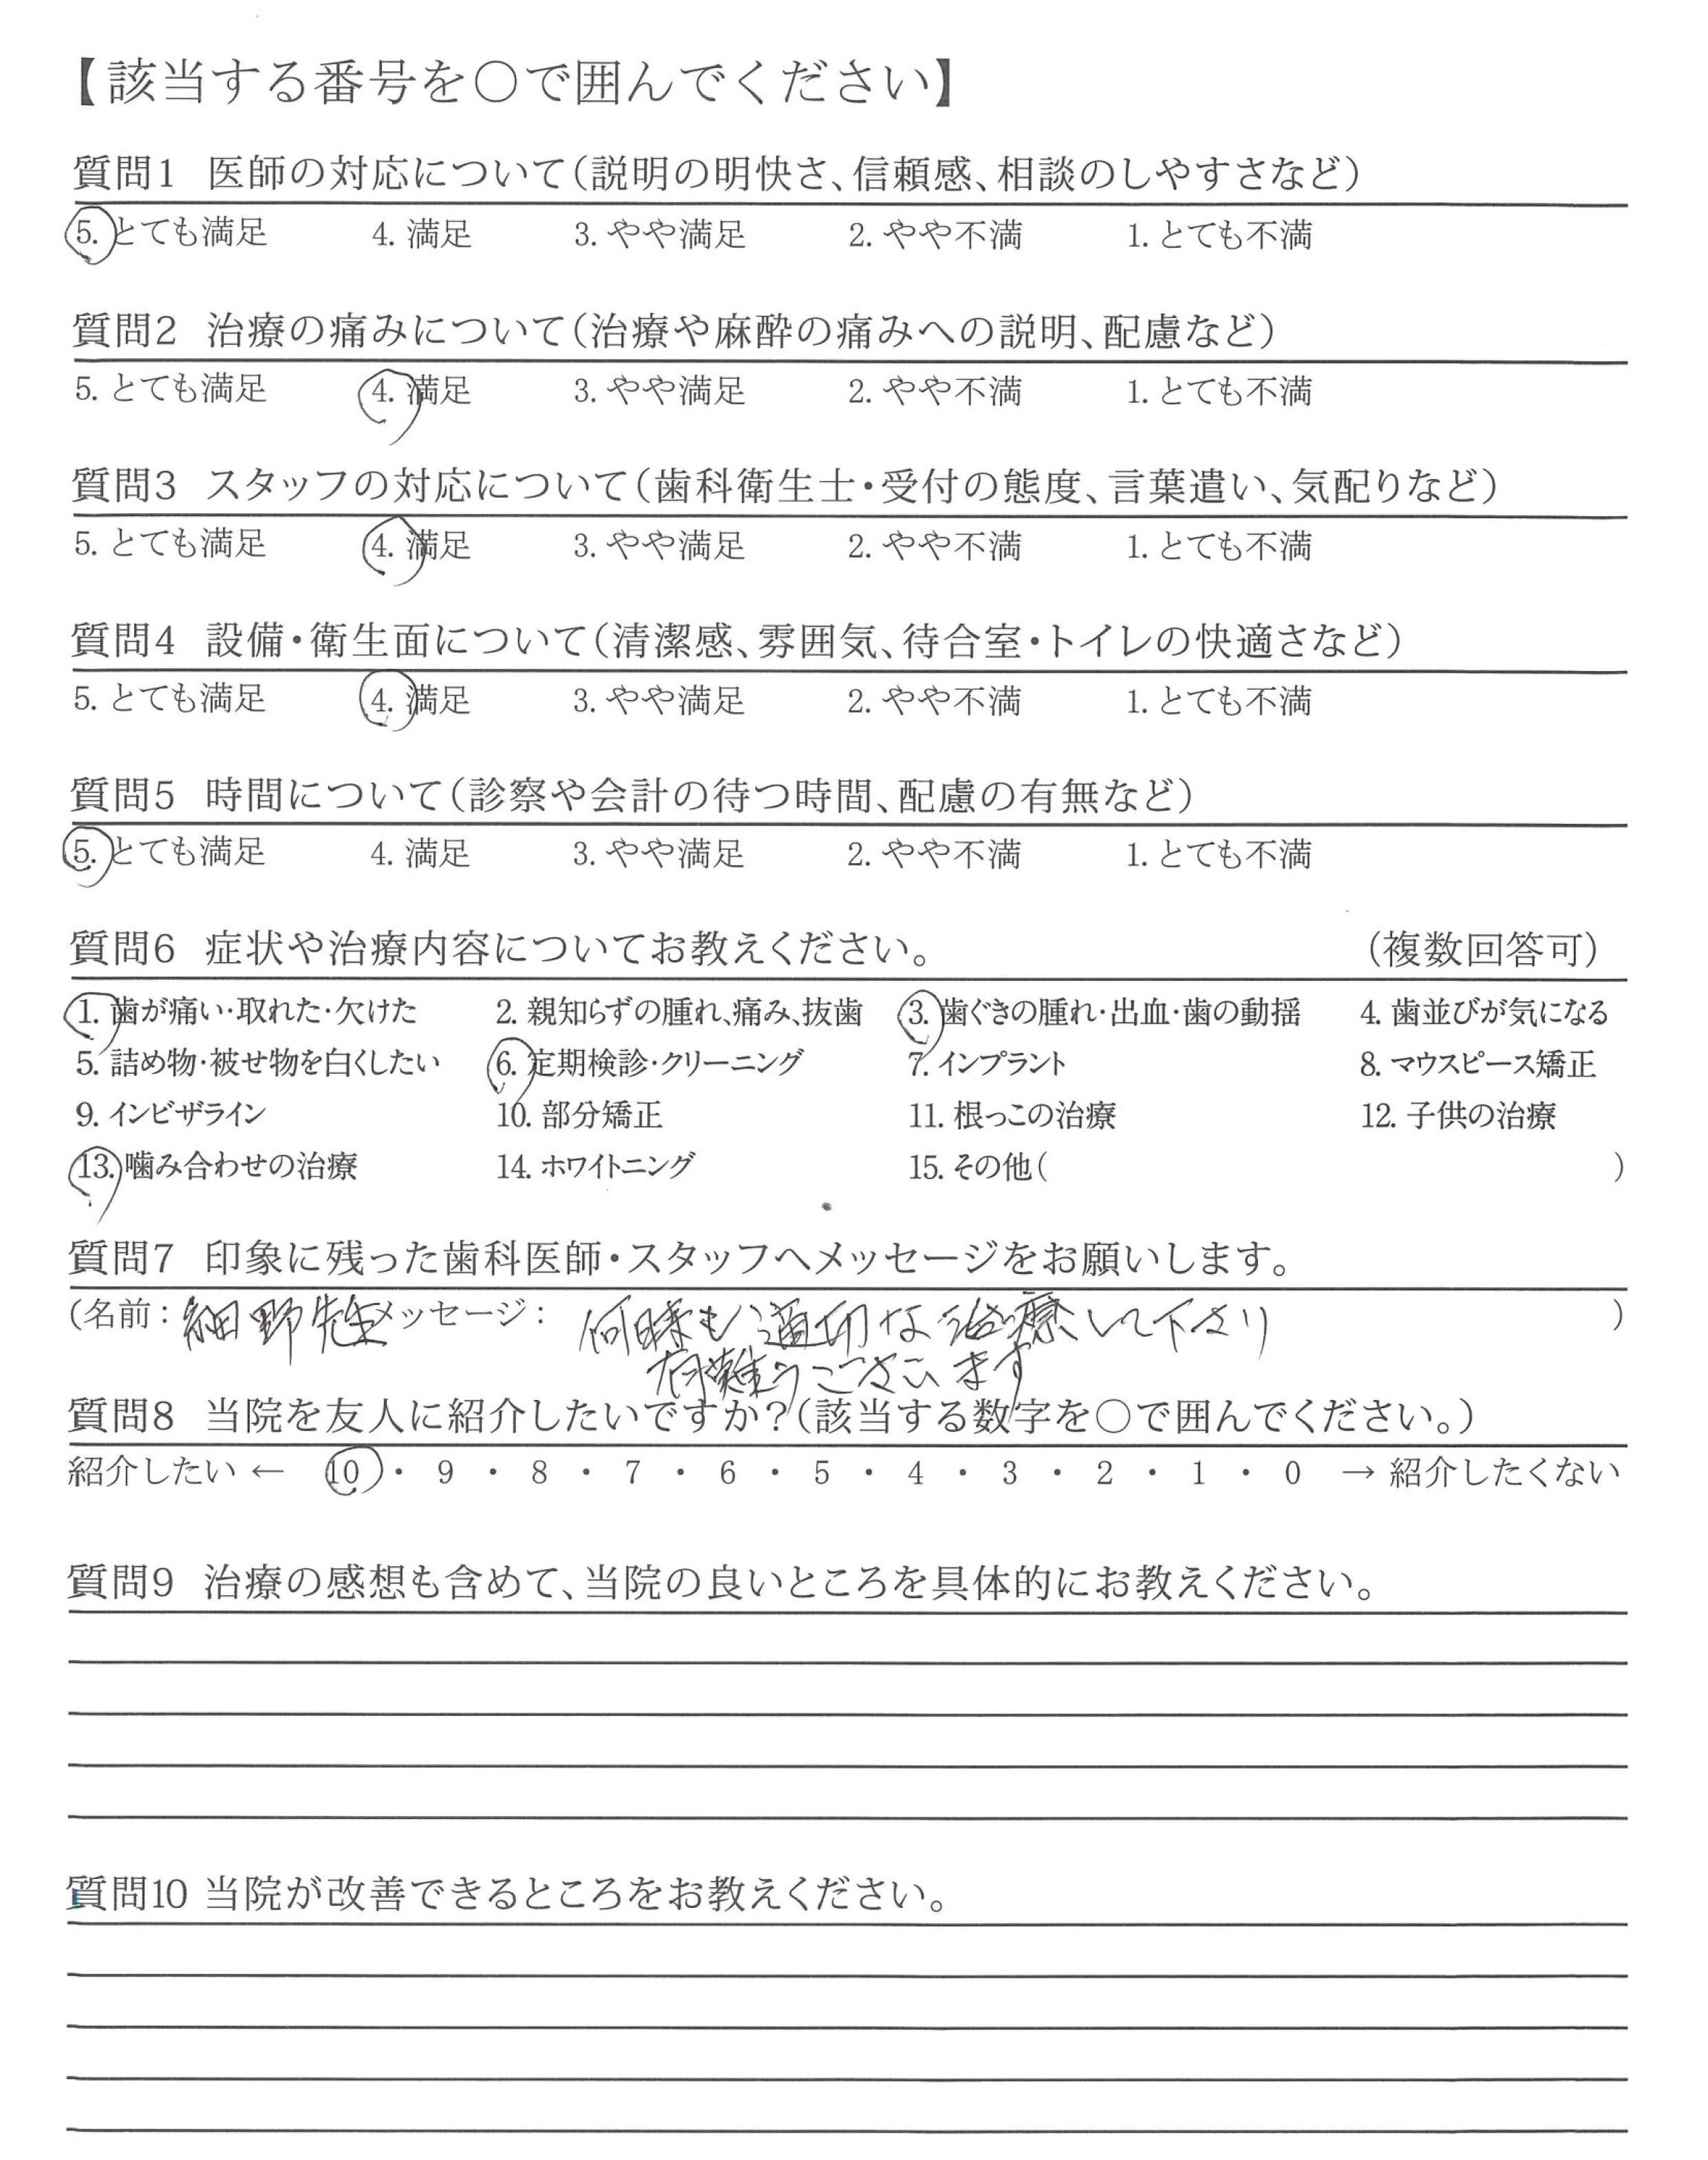 【該当する番号を○で囲んでください】
質問1 医師の対応について(説明の明快さ、信頼感、相談のしやすさなど)
5. とても満足 4. 満足 3. やや満足 2. やや不満 1. とても不満
質問2 治療の痛みについて(治療や麻酔の痛みへの説明、配慮など)
5. とても満足 4. 満足 3. やや満足 2. やや不満 1. とても不満
質問3 スタッフの対応について(歯科衛生士・受付の態度、言葉遣い、気配りなど)
5. とても満足 4. 満足 3. やや満足 2. やや不満 1. とても不満
質問4 設備・衛生面について(清潔感、雰囲気、待合室・トイレの快適さなど)
5. とても満足 4. 満足 3. やや満足 2. やや不満 1. とても不満
質問5 時間について(診察や会計の待つ時間、配慮の有無など)
5. とても満足 4. 満足 3. やや満足 2. やや不満 1. とても不満
質問6 症状や治療内容についてお教えください。 (複数回答可)
1. 歯が痛い・取れた・欠けた 2. 親知らずの腫れ、痛み、抜歯 3. 歯ぐきの腫れ・出血・歯の動揺 4. 歯並びが気になる
5. 詰め物・被せ物を白くしたい 6. 定期検診・クリーニング 7. インプラント 8. マウスピース矯正
9. インビザライン 10. 部分矯正 11. 根っこの治療 12. 子供の治療
13. 噛み合わせの治療 14. ホワイトニング 15. その他( )
質問7 印象に残った歯科医師・スタッフへメッセージをお願いします。
(名前：細野先生メッセージ： 何時も適切な治療して下さり )
有難うございます
質問8 当院を友人に紹介したいですか?(該当する数字を○で囲んでください。)
紹介したい ← 10 ・ 9 ・ 8 ・ 7 ・ 6 ・ 5 ・ 4 ・ 3 ・ 2 ・ 1 ・ 0 → 紹介したくない
質問9 治療の感想も含めて、当院の良いところを具体的にお教えください。
質問10 当院が改善できるところをお教えください。